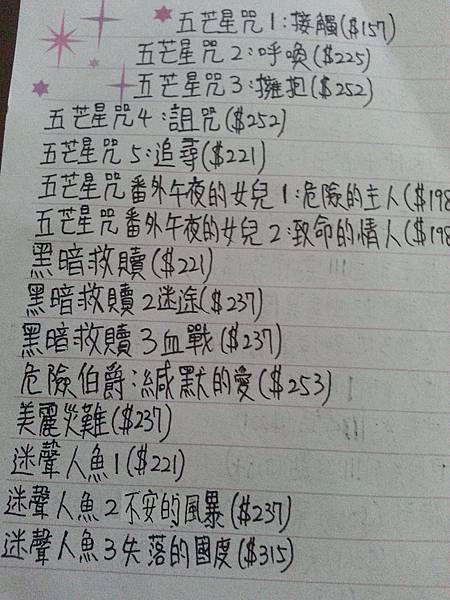 五芒星咒1:接觸($157)
五芒星咒2:呼喚($225)
五芒星咒3:擁抱($252)
五芒星咒4:詛咒($252)
五芒星咒5:追尋($221)
五芒星咒番外午夜的女兒1:危險的主人($198
五芒星咒番外午夜的女兒2:致命的情人($198
黑暗救贖($221)
黑暗救贖2迷途($237)
黑暗救贖3血戰($237)
危險伯爵:緘默的愛($253)
美麗災難($237)
迷聲人魚1($221)
迷聲人魚2不安的風暴($237)
迷聲人魚3失落的國度($315)